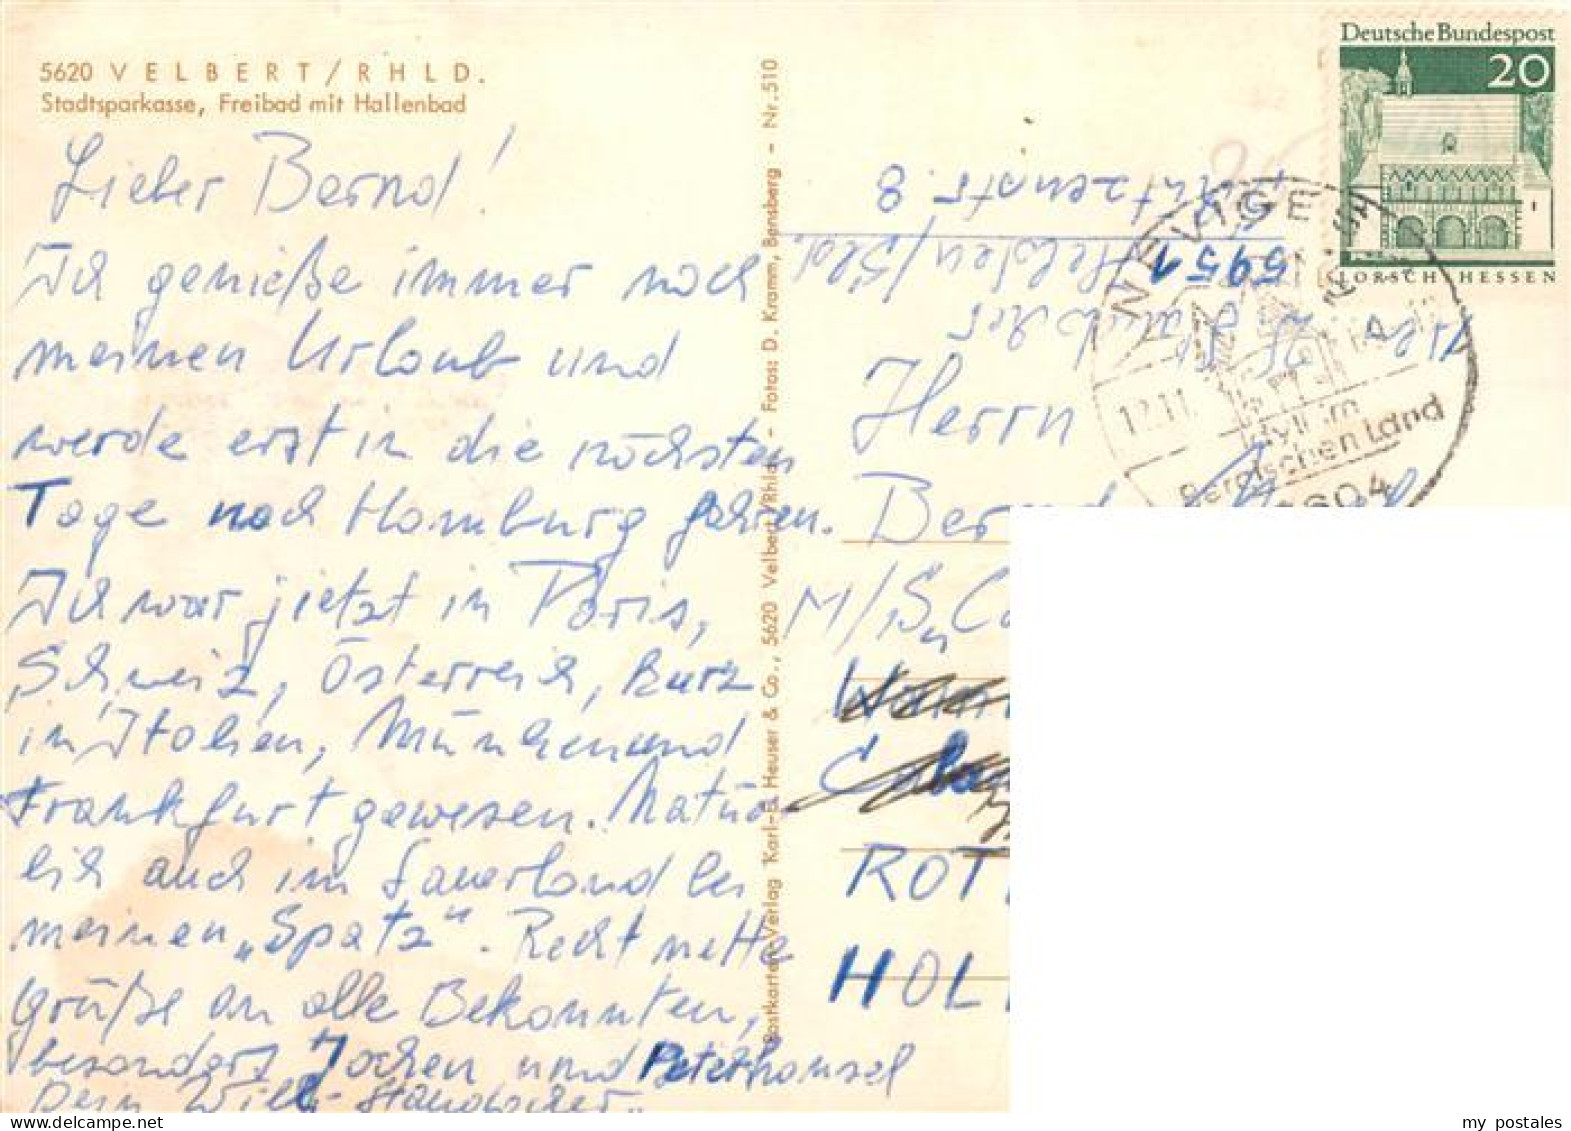 5620 VELBERT/RHLD.
Stadtsparkasse, Freibad mit Hallenbad
Lieber Bernd!
Ich genieße immer noch
meinen Urlaub und
werde erst in die nächsten
Tage nach Hamburg fahren.
Ich war jetzt in Paris,
Schweiz, Österreich, kurz
in Italien, München und
Frankfurt gewesen. Natür
lich auch im Sauerland bei
meinen „Spatz“. Recht nette
Grüße an alle Bekannten,
besonders Jochen und Peterhansel
Dein Willi
Postkarten-Verlag Karl-E. Heuser & Co., 5620 Velbert/Rhld. - Fotos: D. Kramm, Bensberg - Nr. 510
Deutsche Bundespost
20
LORSCH HESSEN
NEVIGES
12.11
Idyll im
Bergischen Land
5604
5951 Helden/Sld.
Schützenstr. 8
Herrn
Bernd
M/S
ROTT
HOL
my postales